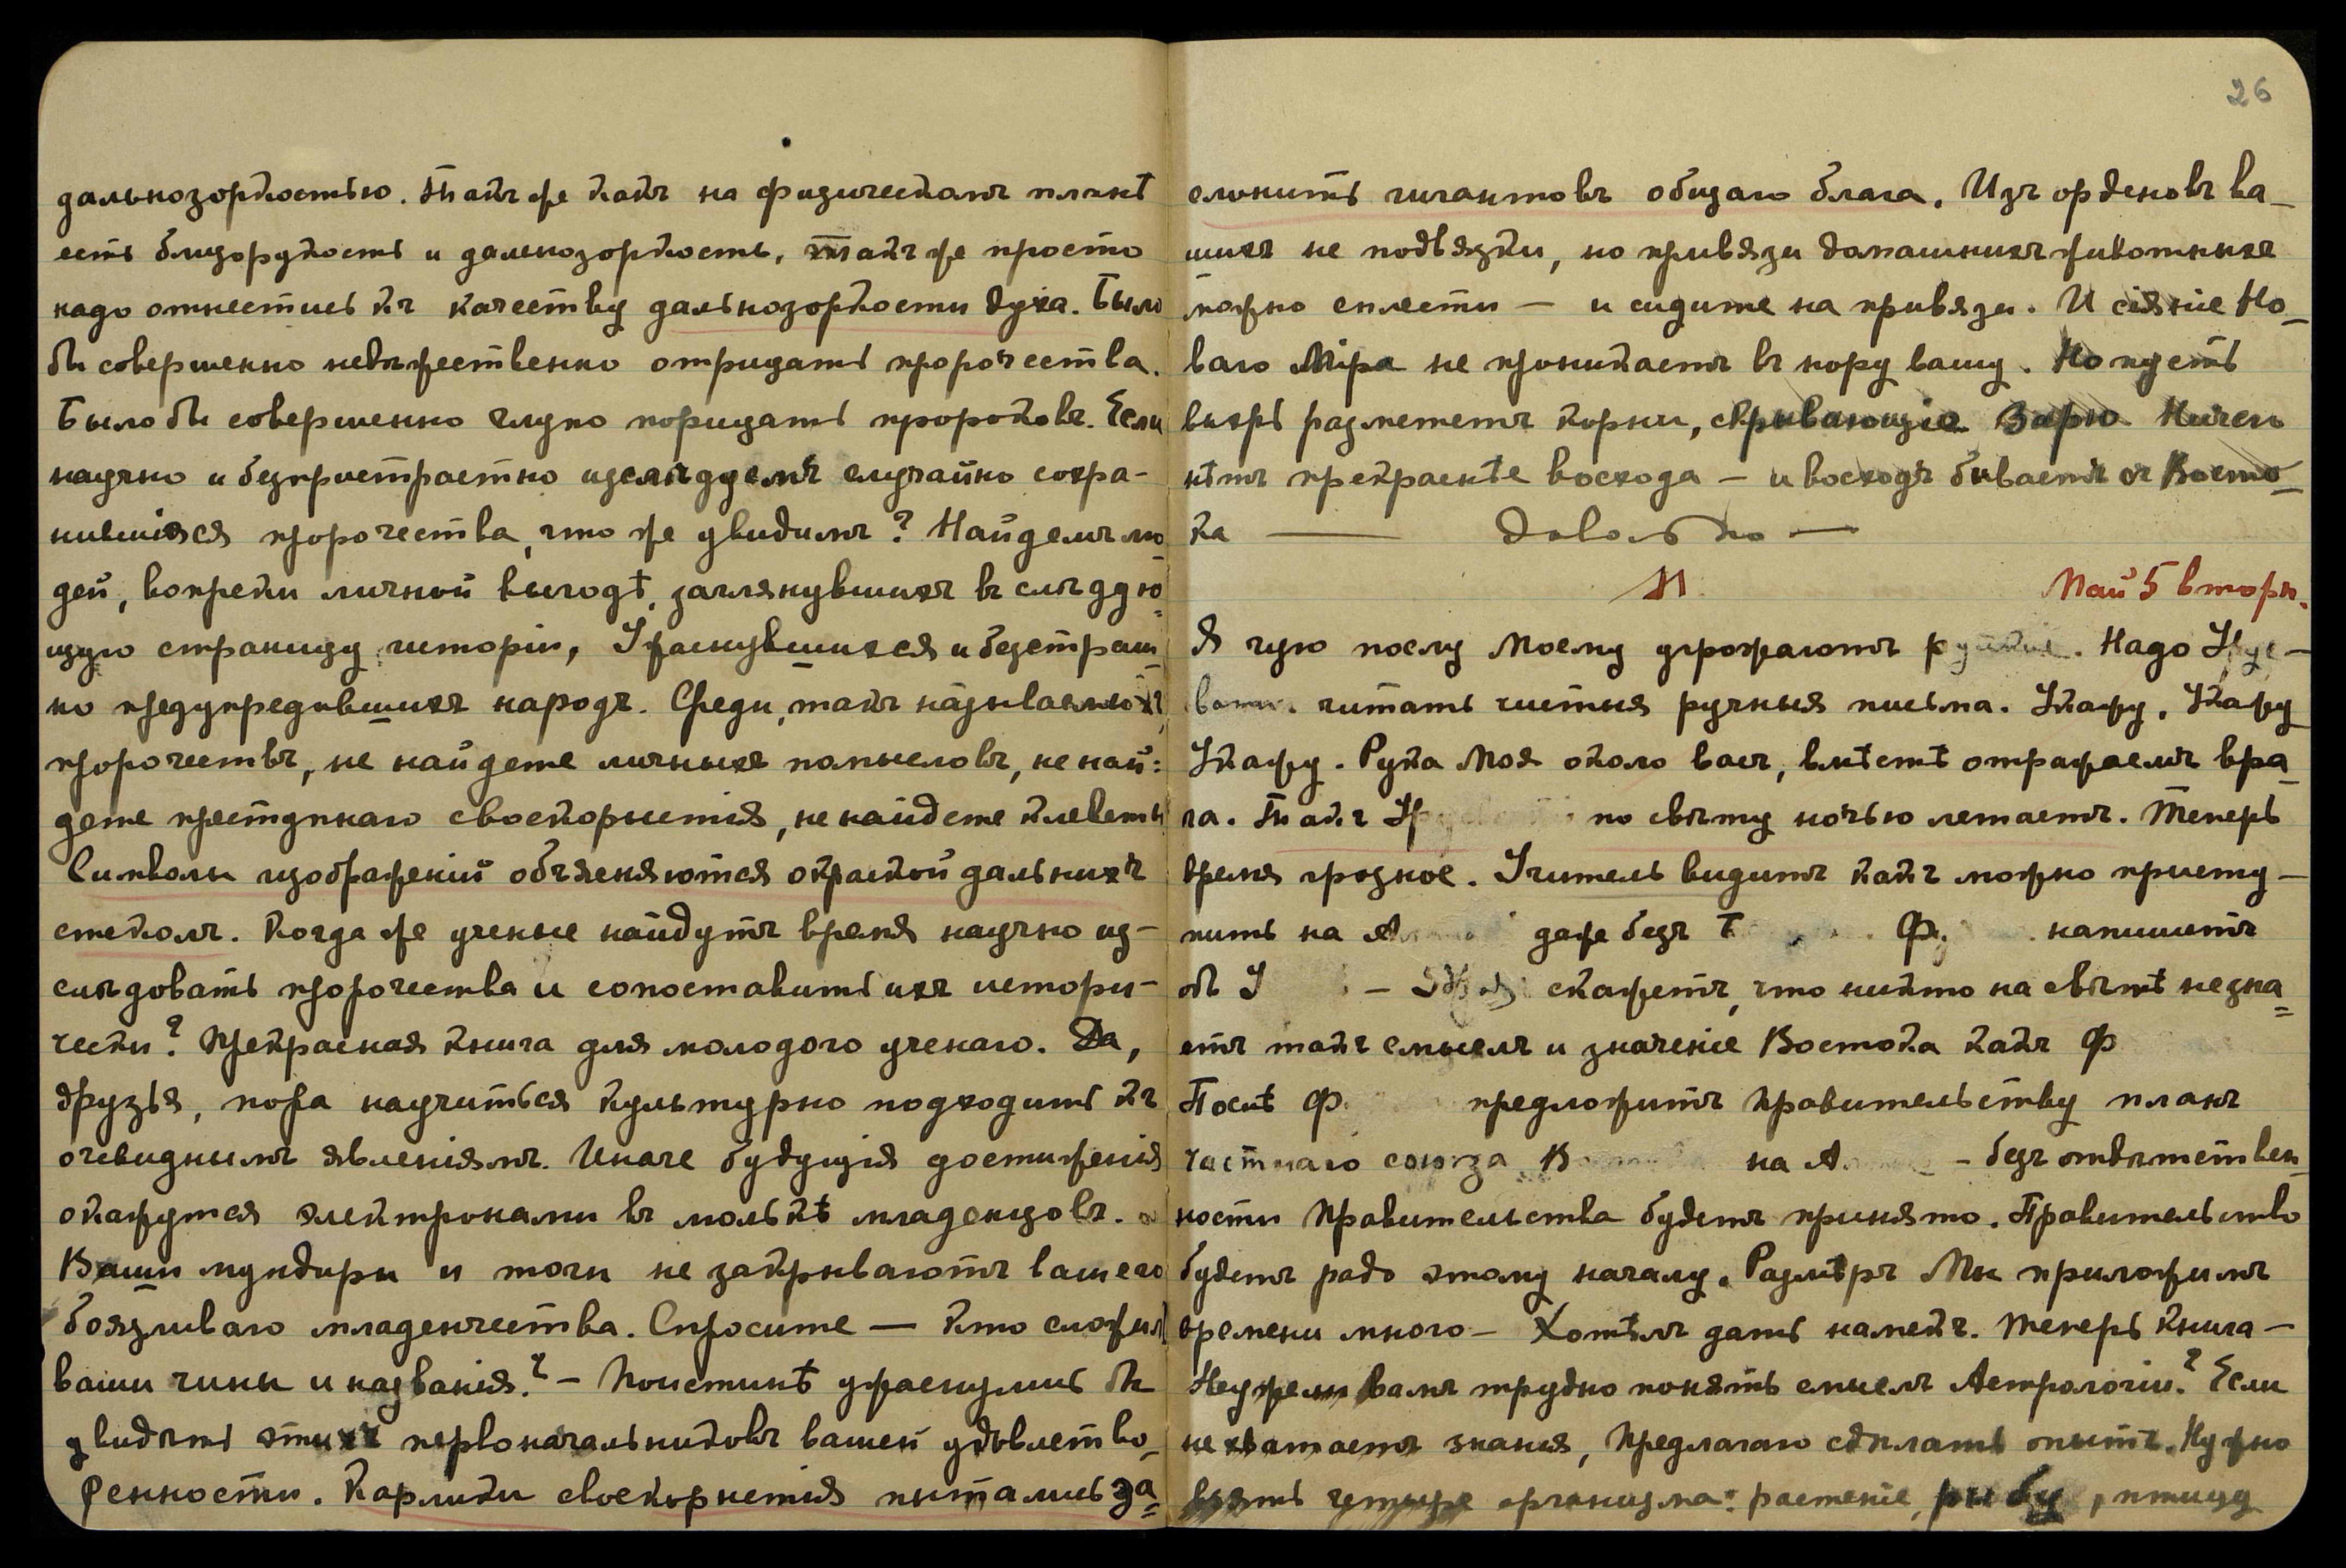 дальнозоркостью. Такъ же какъ на физическомъ планѣ
есть близорукость и дальнозоркость, такъ же просто
надо отнестись къ качеству дальнозоркости духа. Было
бы совершенно невѣжественно отрицать пророчества.
Было бы совершенно глупо порицать пророковъ. Если
научно и безпристрастно изслѣдуемъ случайно сохра-
нившіяся пророчества, что же увидимъ? Найдемъ лю-
дей, вопреки личной выгодѣ, заглянувшихъ въ слѣдую=
щую страницу исторіи, Ужаснувшихся и безстраш-
но предупредившихъ народъ. Среди, такъ называемыхъ,
пророчествъ, не найдете личныхъ помысловъ, не най=
дете преступнаго своекорыстія, не найдете клеветы
Символы изображеній объясняются окраской дальнихъ
стеколъ. Когда же ученые найдутъ время научно из-
слѣдовать пророчества и сопоставить ихъ истори-
чески? Прекрасная книга для молодого ученаго. Да,
друзья, пора научиться культурно подходить къ
очевиднымъ явленіямъ. Иначе будущія достиженія
окажутся электронами въ молькѣ младенцовъ.
Ваши мундиры и тоги не закрываютъ вашего
боязливаго младенчества. Спросите — кто сложил
ваши чины и названія? - Поистинѣ ужаснулись бы
увидѣть этихъ первоначальниковъ вашей удовлетво-
ренности. Карлики своекорыстія пытались за=
26
слонить гигантовъ общаго блага. Изъ орденовъ ва-
шихъ не подвязки, но привязи домашнихъ животныхъ
можно сплести — и сидите на привязи. И сіяніе Но-
ваго Міра не проникаетъ въ нору вашу. Но пусть
вихрь размететъ корни, скрывающіе Зарю Ничего
нѣтъ прекраснѣе восхода - и восходъ бываетъ съ Восто-
ка — довольно —
М Май 5 вторн.
Я чую послу Моему угрожаютъ. Надо
читать чистыя ручныя письма. Укажу, Укажу
Укажу. Рука Моя около васъ, вмѣстѣ отражаемъ вра-
га. Такъ по свѣту ночью летаетъ. Теперь
время грозное. Учитель видитъ какъ можно присту-
пить на даже безъ Ф напишетъ
объ У - скажетъ, что никто на свѣтѣ не зна=
етъ такъ смыслъ и значеніе Востока какъ Ф
Послѣ Ф предложитъ правительству планъ
частнаго союза на А - безъ отвѣтствен
ности правительства будетъ принято. Правительство
будетъ радо этому началу. Размѣръ Мы приложимъ
времени много - Хотѣлъ дать намекъ. Теперь книга -
Неужели вамъ трудно понять смыслъ Астрологіи? Если
не хватаетъ знанія, предлагаю сдѣлать опытъ. Нужно
взять четыре организма: растеніе, рыбу, птицу